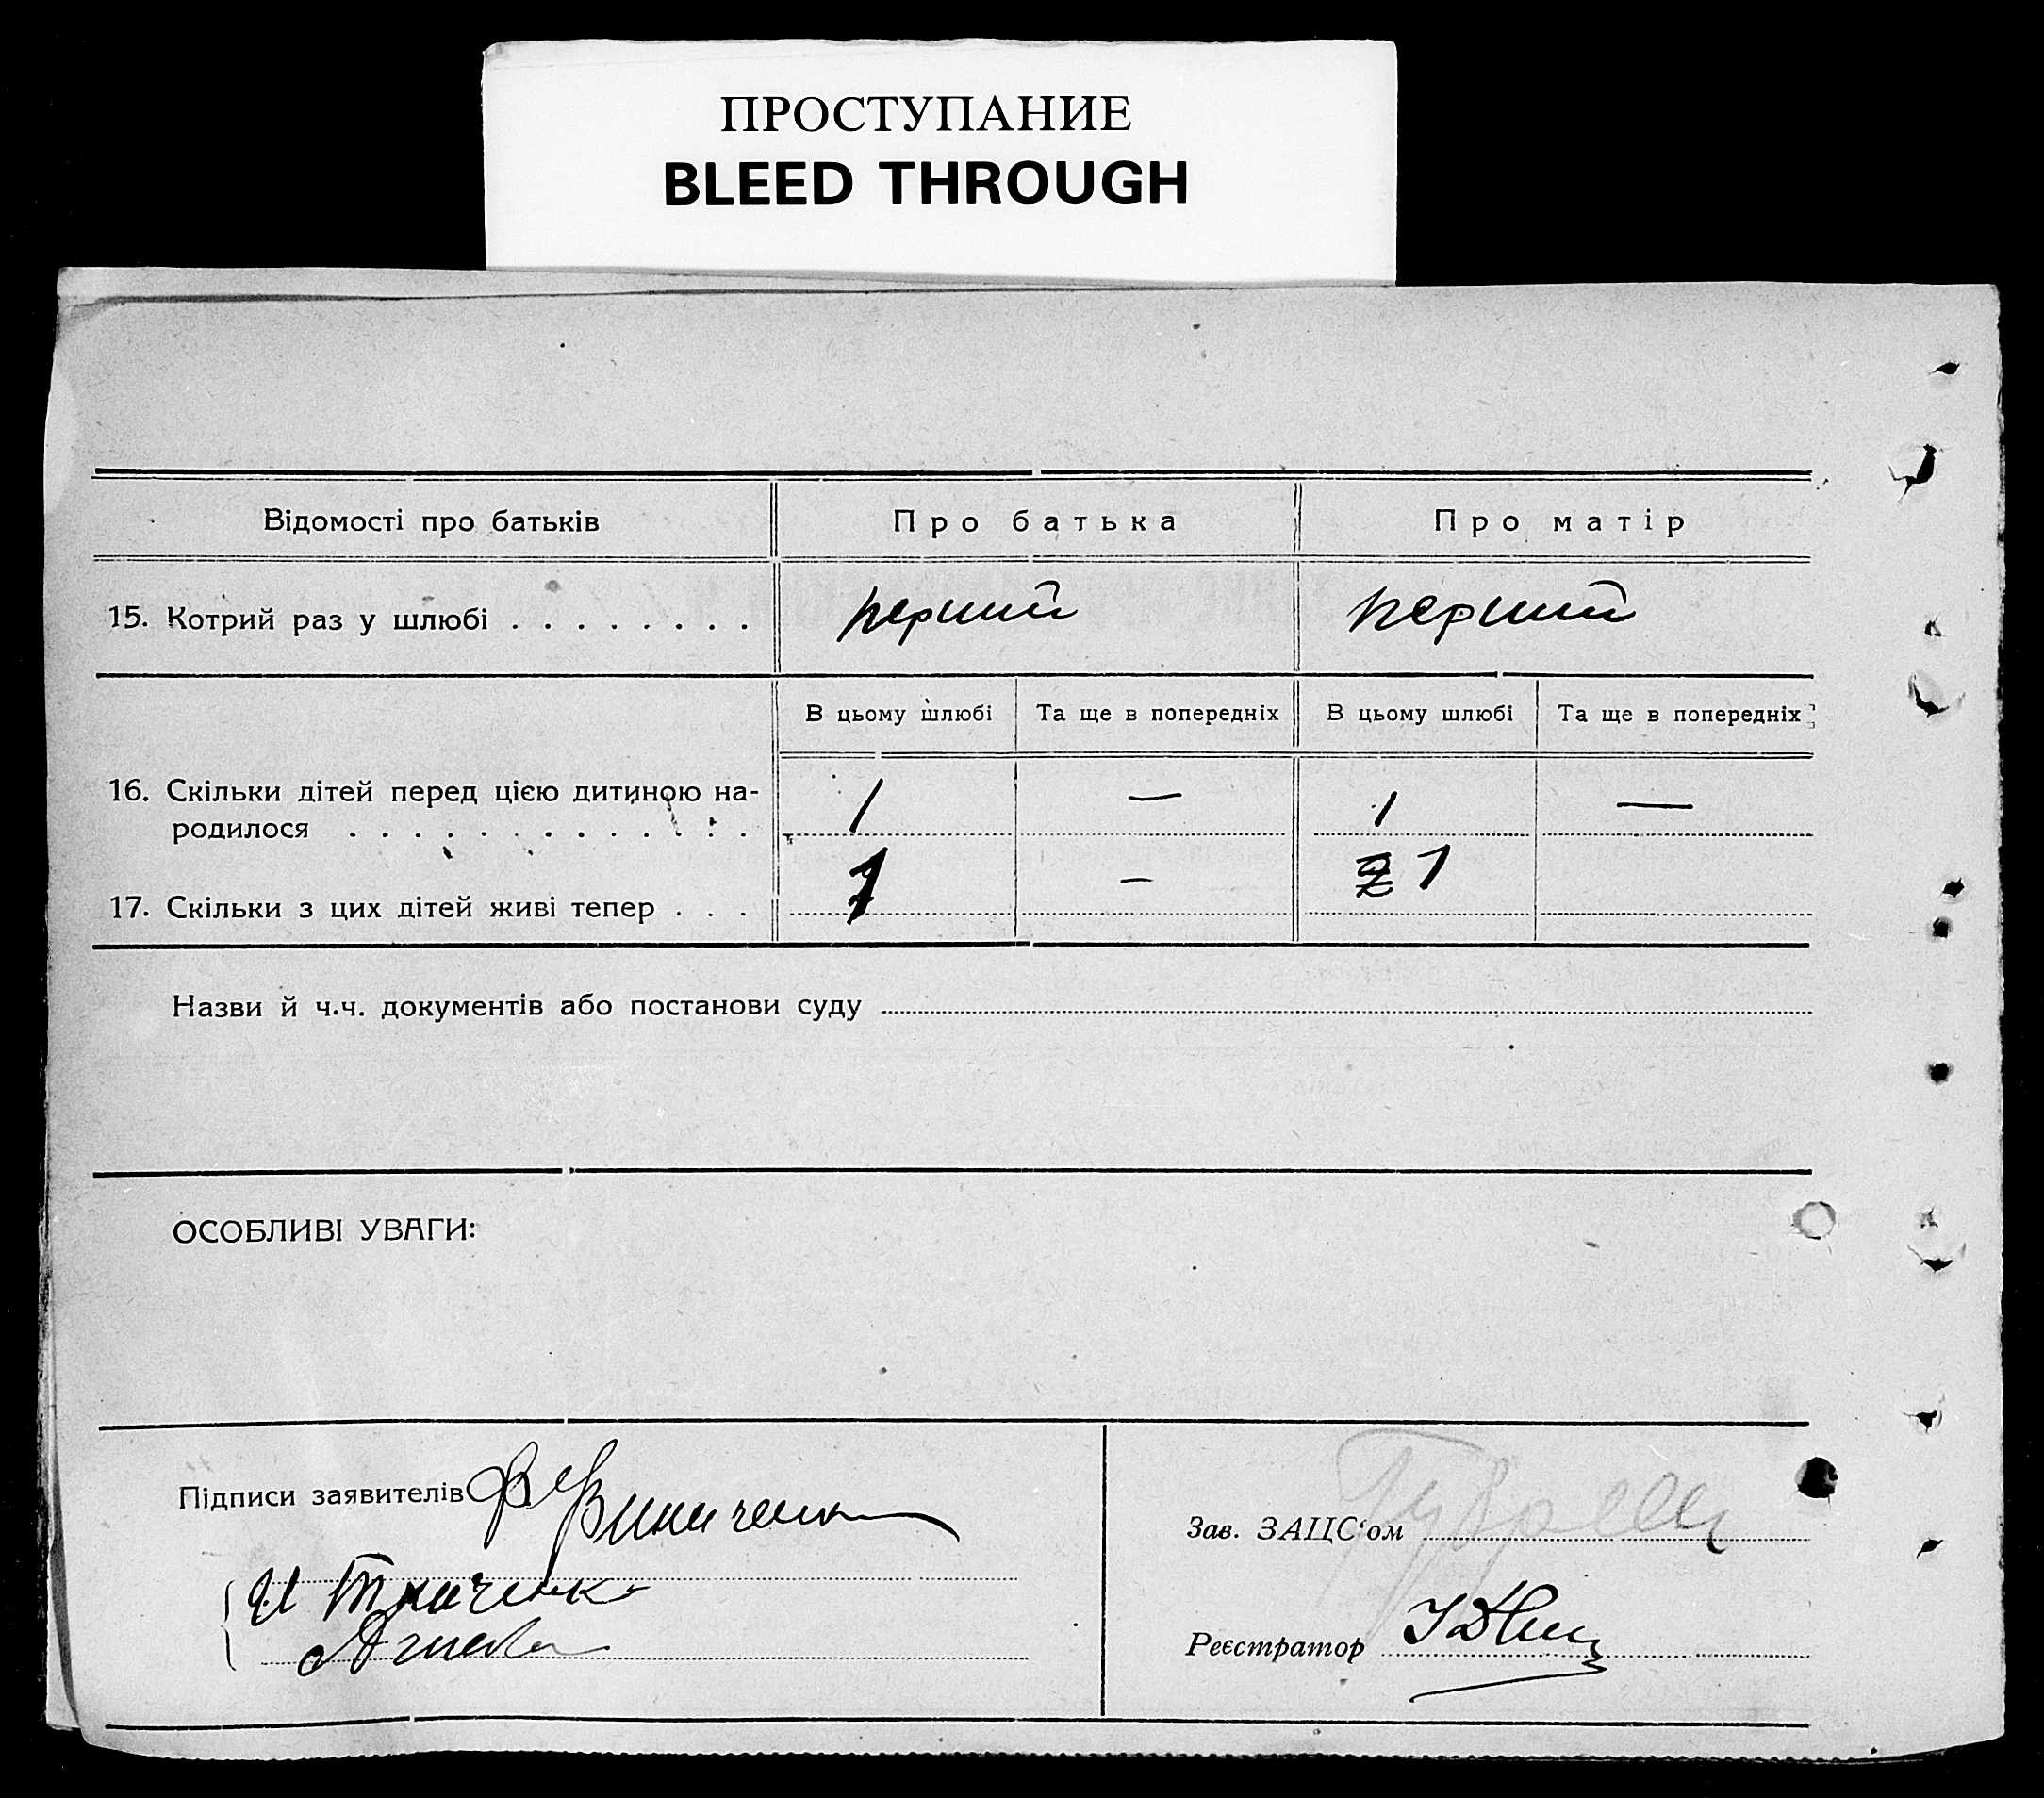 ПРОСТУПАНИЕ
BLEED THROUGH
Відомості про батьків
Про батька
Про матір
15. Котрий раз у шлюбі . . . . . . . .
перший
перший
В цьому шлюбі
Та ще в попередніх
В цьому шлюбі
Та ще в попередніх
16. Скільки дітей перед цією дитиною на-
родилося . . . . . . . . . . . .
1
—
1
—
17. Скільки з цих дітей живі тепер . . .
1
—
1
Назви й ч.ч. документів або постанови суду
ОСОБЛИВІ УВАГИ:
Підписи заявителів
Ткаченко
Зав. ЗАЦС‘ом
Реєстратор